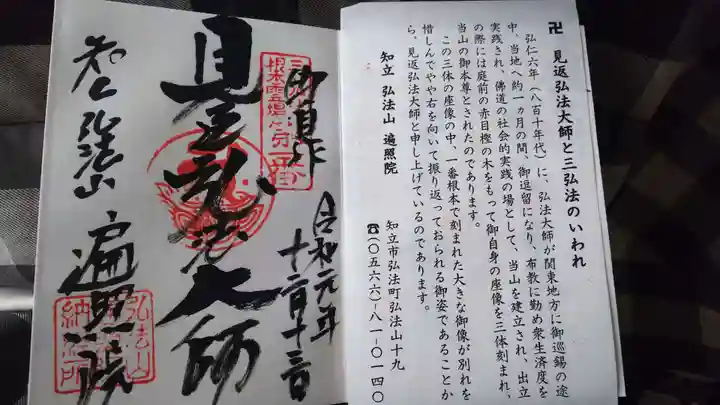 卍 見返弘法大師と三弘法のいわれ
弘仁六年(八百十年代)に、弘法大師が関東地方に御巡錫の途
中、当地へ約一ヵ月の間、御逗留になり、布教に勤め衆生済度を
実践され、佛道の社会的実践の場として、当山を建立され、出立
の際には庭前の赤目樫の木をもって御自身の座像を三体刻まれ、
当山の御本尊とされたのであります。
この三体の座像の中、一番根本で刻まれた大きな御像が別れを
惜しんでやや右を向いて振り返っておられる御姿であることか
ら、見返弘法大師と申し上げているのであります。
知立 弘法山 遍照院
知立市弘法町弘法山十九
☎(〇五六六)八一-〇一四〇
令和元年
十二月十三日
御自作
一番
見返弘法大師
知立弘法山
遍照院
弘法山
納経所